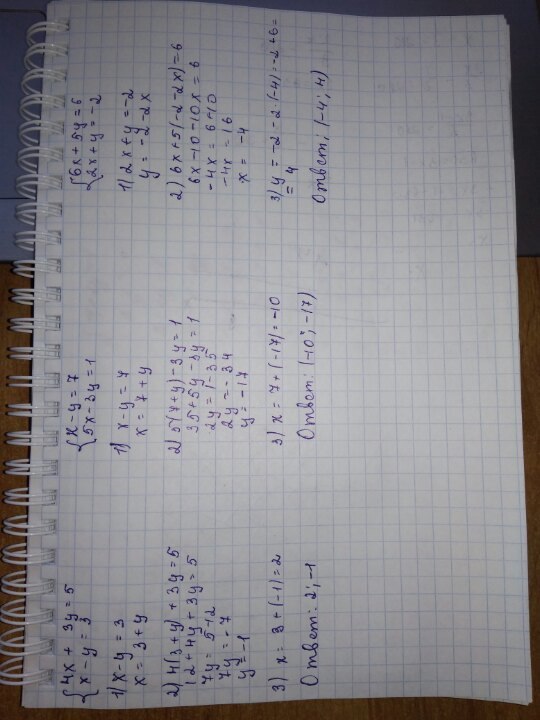 {4x + 3y = 5
{x - y = 3
1) x - y = 3
x = 3 + y
2) 4(3+y) + 3y = 5
12 + 4y + 3y = 5
7y = 5-12
7y = -7
y = -1
3) x = 3 + (-1) = 2
Ответ: 2; -1
{x - y = 7
{5x - 3y = 1
1) x - y = 7
x = 7 + y
2) 5(7+y) - 3y = 1
35 + 5y - 3y = 1
2y = 1 - 35
2y = -34
y = -17
3) x = 7 + (-17) = -10
Ответ: (-10; -17)
{6x + 5y = 6
{2x + y = -2
1) 2x + y = -2
y = -2 - 2x
2) 6x + 5(-2 - 2x) = 6
6x - 10 - 10x = 6
-4x = 6 + 10
-4x = 16
x = -4
3) y = -2 - 2·(-4) = -2 + 6 =
= 4
Ответ: (-4; 4)